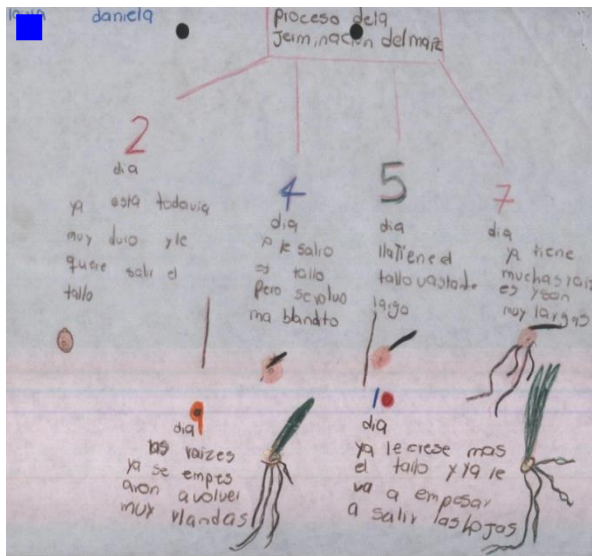 daniela
proceso dela
Jerminacion del maiz
2
dia
ya esta todavia
muy duro yle
quere salir el
tallo
4
dia
ya le salio
el tallo
pero se volvo
ma blandito
5
dia
lla tiene el
tallo vastante
largo
7
dia
ya tiene
muchas raiz
es y son
muy largas
9
dia
las raizes
ya se empes
aron a volver
muy vlandas
10
dia
ya le crese mas
el tallo y ya le
va a empesar
a salir las hojas